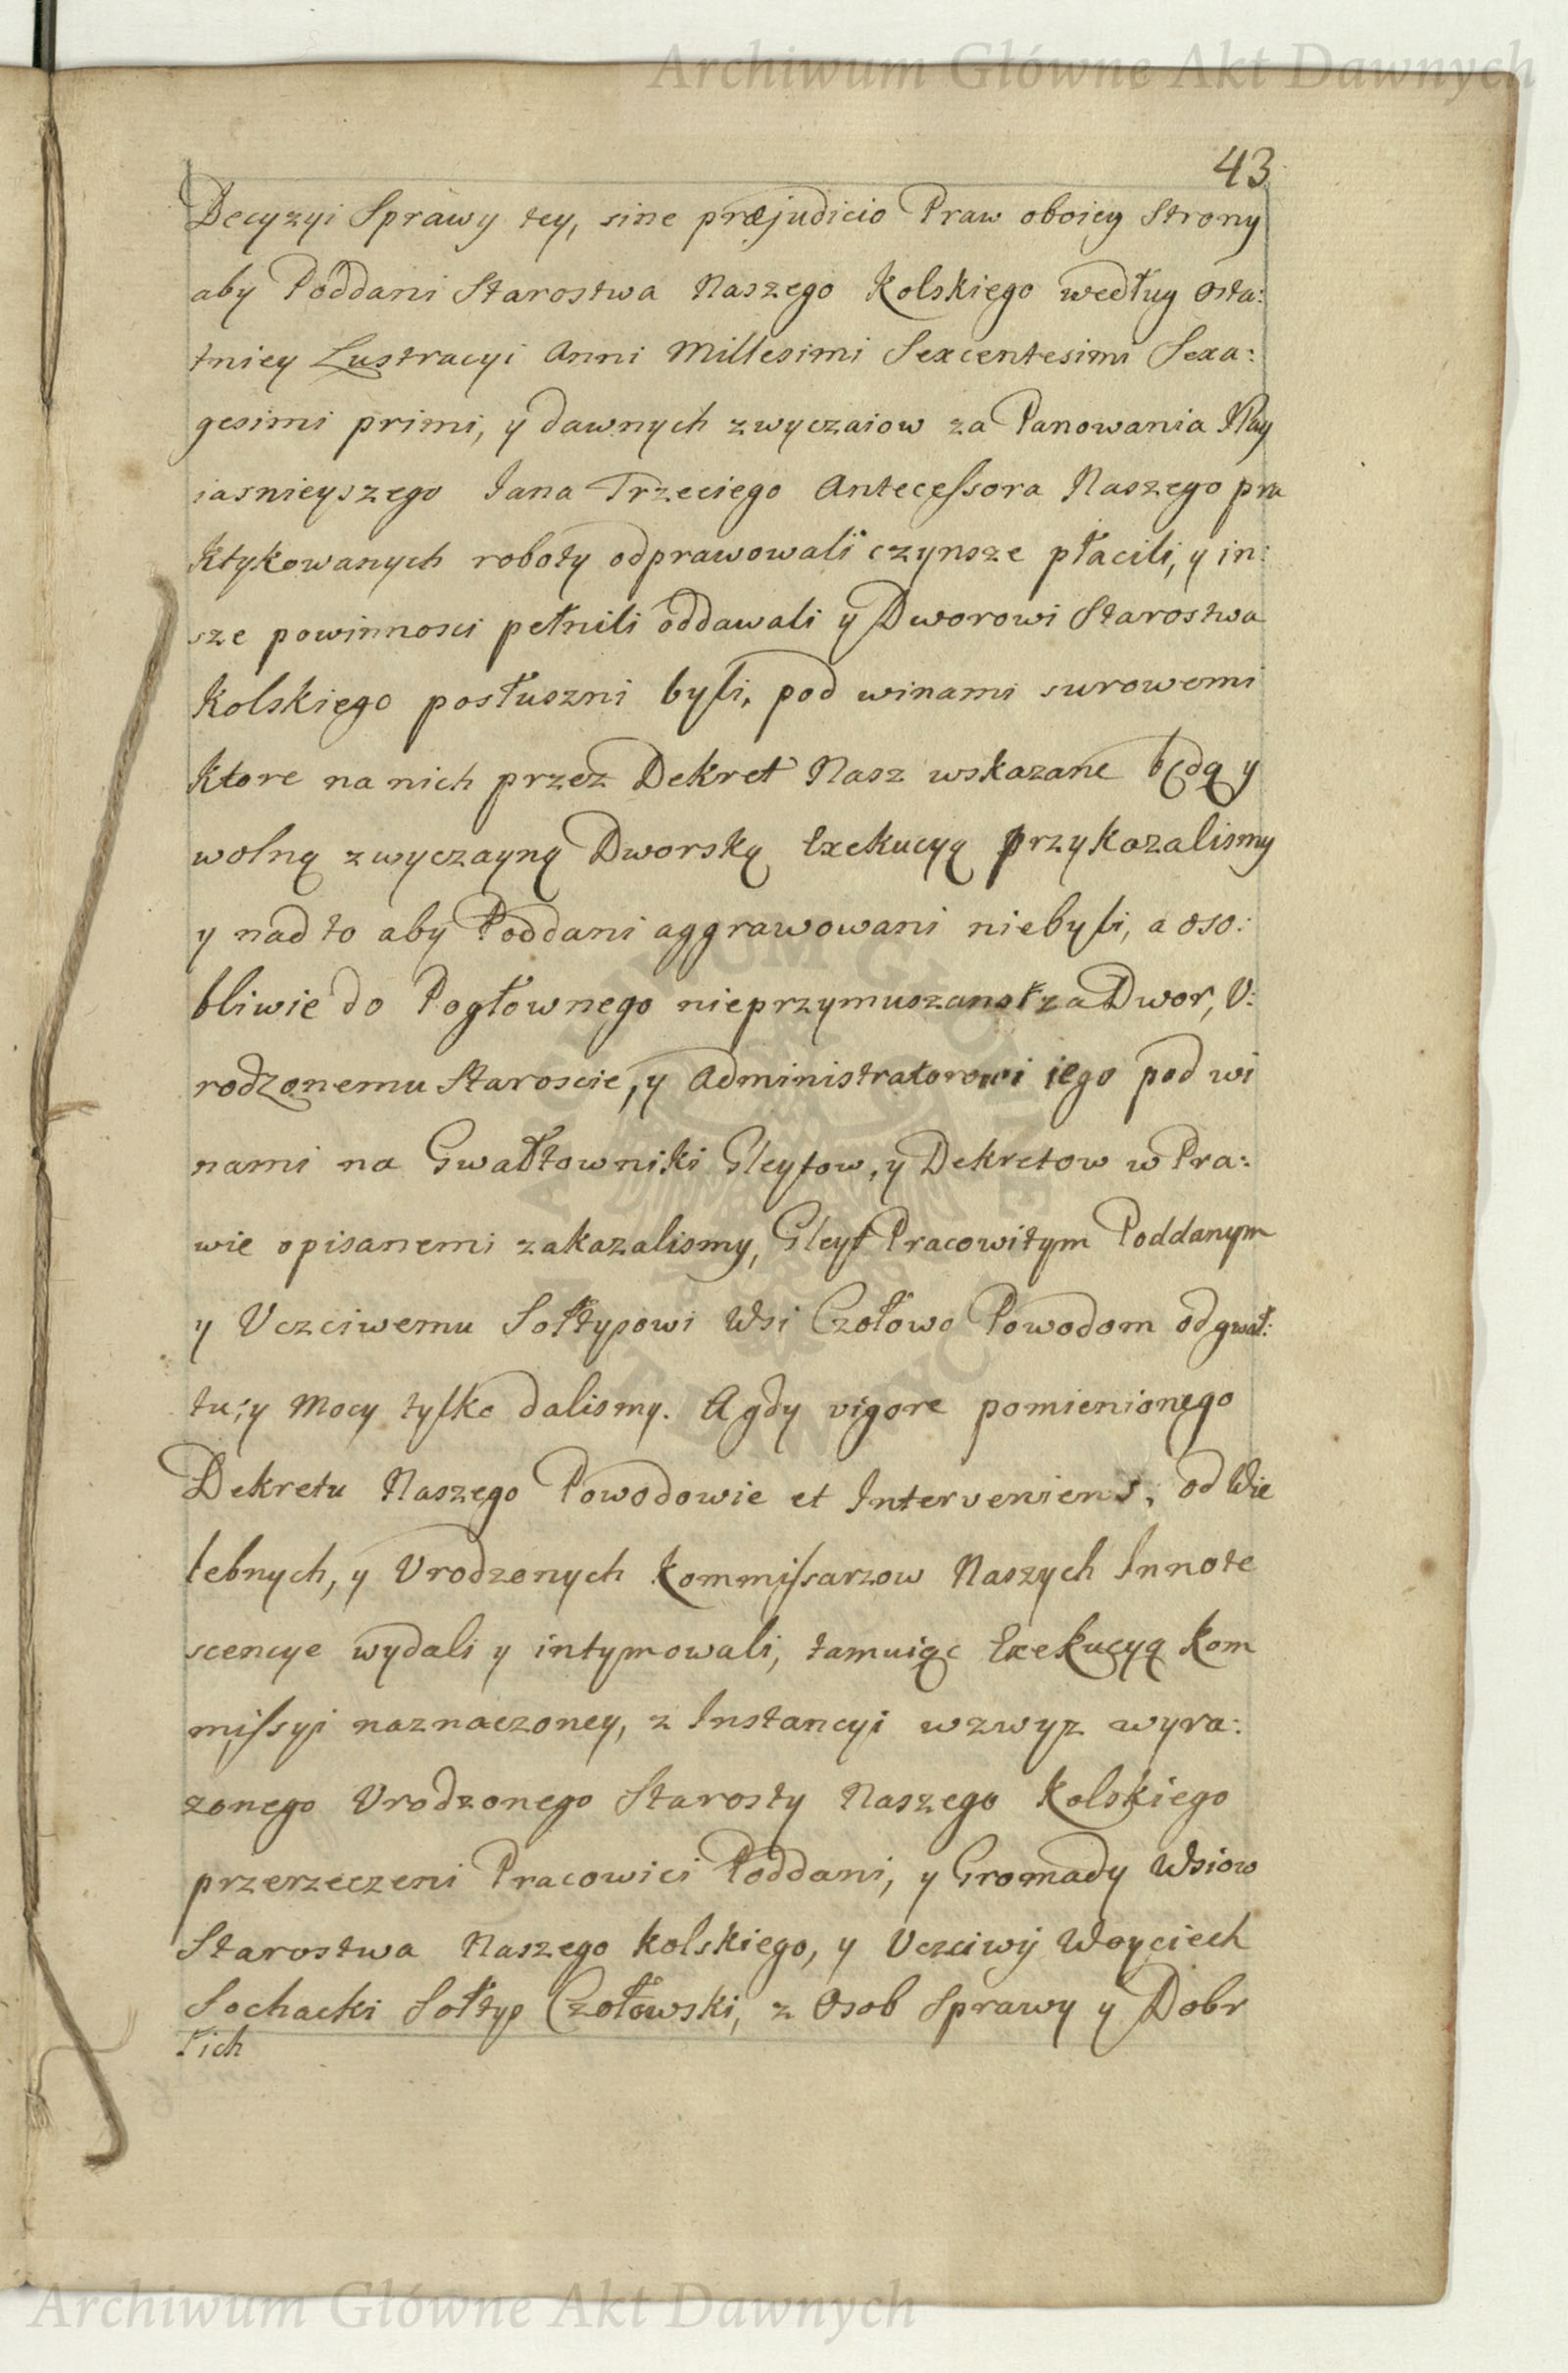 Archiwum Główne Akt Dawnych
43
Decyzyi Sprawy tey, sine præjudicio Praw oboiey Strony
aby Poddani Starostwa Naszego Kolskiego według osta:
tniey Lustracyi Anni Millesimi Sexcentesimi Sexa:
gesimi primi, y dawnych zwyczaiow za Panowania Nay
iasnieyszego Jana Trzeciego Antecessora Naszego pra
ktykowanych roboty odprawowali czynsze płacili, y in:
sze powinnosci pełnili oddawali y Dworowi Starostwa
Kolskiego posłuszni byli, pod winami surowemi
ktore na nich przez Dekret Nasz wskazane będą y
wolną zwyczayną Dworską Exekucyą przykazalismy
y nad to aby Poddani aggrawowani niebyli, a oso:
bliwie do Pogłownego nieprzymuszano za Dwor, U:
rodzonemu Staroscie, y Administratorowi iego pod wi
nami na Gwałtowniki Gleytow, y Dekretow w Pra:
wie opisanemi zakazalismy, Gleyt Pracowitym Poddanym
y Uczciwemu Sołtysowi Wsi Czołowo Powodom od gwał:
tu, y Mocy tylko dalismy. A gdy vigore pomienionego
Dekretu Naszego Powodowie et Interveniens, od Wie
lebnych, y Urodzonych Kommissarzow Naszych Innote
scencye wydali y intymowali, tamuiąc Exekucyą Kom
missyi naznaczoney, z Instancyi wzwyz wyra:
zonego Urodzonego Starosty Naszego Kolskiego
przerzeczeni Pracowici Poddani, y Gromady Wsiow
Starostwa Naszego Kolskiego, y Uczciwy Woyciech
Sochacki Sołtys Czołowski, z Osob Sprawy y Dobr
ich
ARCHIWUM GŁÓWNE AKT DAWNYCH
Archiwum Główne Akt Dawnych